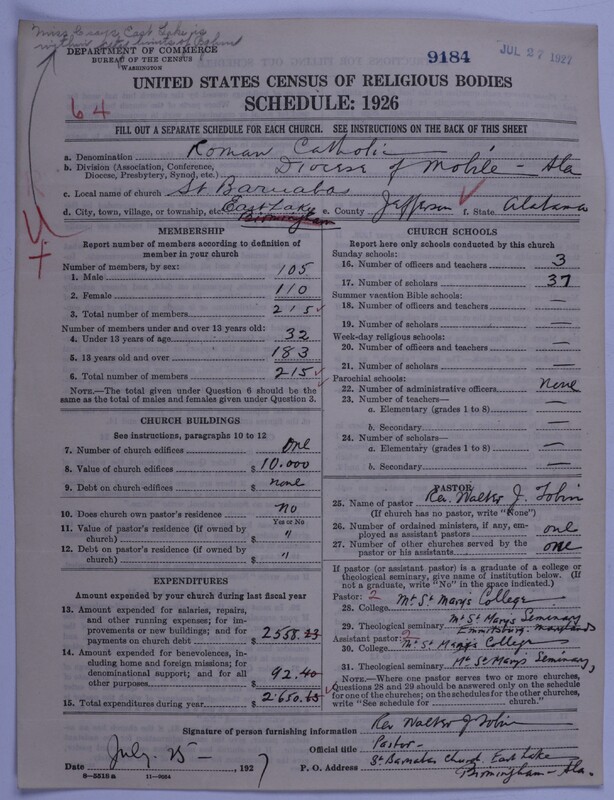 East Lake is
9184
JUL 27 1927
DEPARTMENT OF COMMERCE
BUREAU OF THE CENSUS
WASHINGTON
UNITED STATES CENSUS OF RELIGIOUS BODIES
SCHEDULE: 1926
64
FILL OUT A SEPARATE SCHEDULE FOR EACH CHURCH. SEE INSTRUCTIONS ON THE BACK OF THIS SHEET
a. Denomination Roman Catholic
b. Division (Association, Conference, Diocese, Presbytery, Synod, etc.) Diocese of Mobile - Ala
c. Local name of church St Barnabas
d. City, town, village, or township, etc. East Lake Birmingham e. County Jefferson f. State Alabama
MEMBERSHIP
Report number of members according to definition of
member in your church
Number of members, by sex:
1. Male 105
2. Female 110
3. Total number of members 215
Number of members under and over 13 years old:
4. Under 13 years of age 32
5. 13 years old and over 183
6. Total number of members 215
NOTE.—The total given under Question 6 should be the
same as the total of males and females given under Question 3.
CHURCH BUILDINGS
See instructions, paragraphs 10 to 12
7. Number of church edifices One
8. Value of church edifices $ 10.000
9. Debt on church edifices $ none
10. Does church own pastor's residence? No
Yes or No
11. Value of pastor's residence (if owned by
church) $ "
12. Debt on pastor's residence (if owned by
church) $ "
EXPENDITURES
Amount expended by your church during last fiscal year
13. Amount expended for salaries, repairs,
and other running expenses; for im-
provements or new buildings; and for
payments on church debt $ 2558.23
14. Amount expended for benevolences,
including home and foreign missions; for
denominational support; and for all
other purposes $ 92.40
15. Total expenditures during year $ 2650.
CHURCH SCHOOLS
Report here only schools conducted by this church
Sunday schools:
16. Number of officers and teachers 3
17. Number of scholars 37
Summer vacation Bible schools:
18. Number of officers and teachers —
19. Number of scholars —
Week-day religious schools:
20. Number of officers and teachers —
21. Number of scholars —
Parochial schools:
22. Number of administrative officers none
23. Number of teachers—
a. Elementary (grades 1 to 8) —
b. Secondary —
24. Number of scholars—
a. Elementary (grades 1 to 8) —
b. Secondary —
PASTOR
25. Name of pastor Rev. Walter J. Tobin
(If church has no pastor, write "None")
26. Number of ordained ministers, if any, em-
ployed as assistant pastors one
27. Number of other churches served by the
pastor or his assistants one
If pastor (or assistant pastor) is a graduate of a college or
theological seminary, give name of institution below. (If
not a graduate, write "No" in the space indicated.)
Pastor: 2
28. College Mt St Marys College
29. Theological seminary Mt St Marys Seminary
Emmitsburg Maryland
Assistant pastor: 2
30. College Mt St Marys College
31. Theological seminary Mt St Marys Seminary,
NOTE.—Where one pastor serves two or more churches,
Questions 28 and 29 should be answered only on the schedule
for one of the churches; on the schedules for the other churches,
write "See schedule for church."
Signature of person furnishing information Rev Walter J Tobin
Official title Pastor-
Date July 25 - , 1927
P. O. Address St Barnabas Church East Lake
Birmingham - Ala.
8—5518a 11—9054